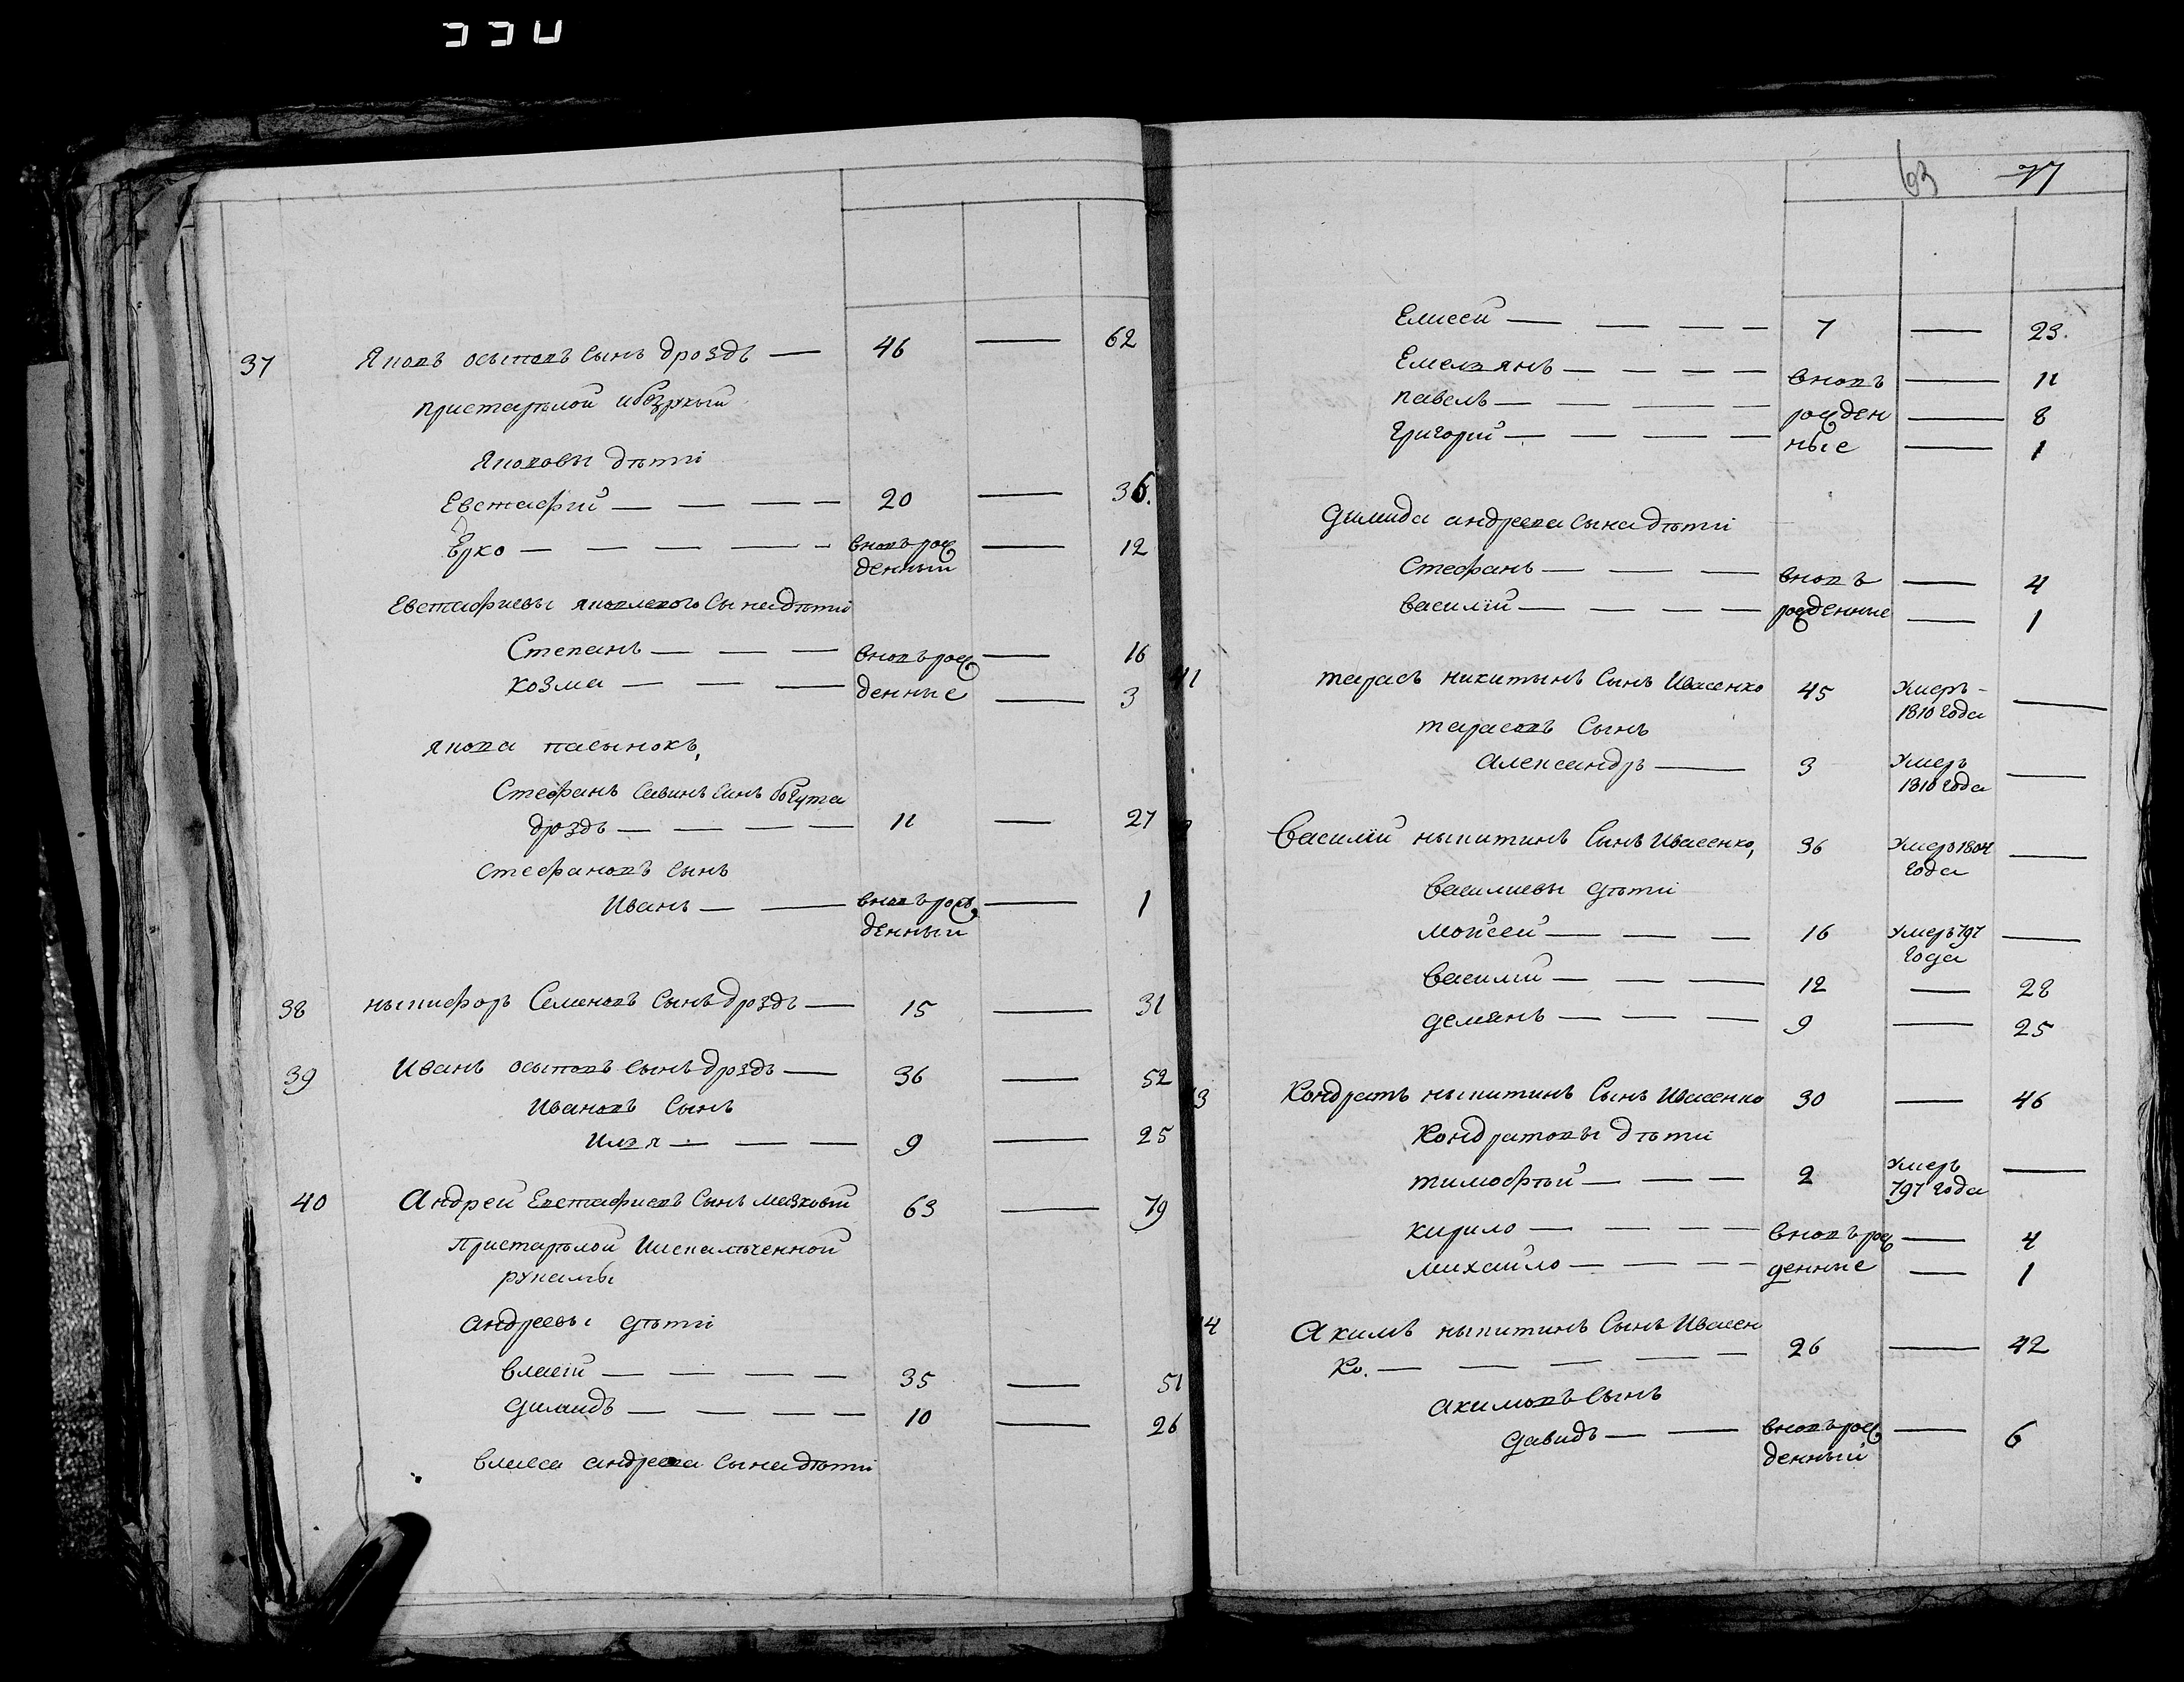 37 Яковъ осыповъ сынъ дроздъ — 46 — 62
пристарѣлой
Якововы дѣти
Евстафий — — — — 20 — 36.
Ерко — — — — — вновъ рож — 12
денный
Евстафиевы яковлевого сына дѣти
Степанъ — — — вновъ рож — 16
козма — — — денные — 3
якова пасынокъ,
Стефанъ савинъ синъ богута
дроздъ — — — — 11 — 27
стефановъ сынъ
Иванъ — — вновъ рож — 1
денный
38 ныкифоръ Семеновъ сынъ дроздъ — 15 — 31
39 Иванъ осыповъ сынъ дроздъ — 36 — 52
Ивановъ сынъ
Илья — — — 9 — 25
40 Андрей Евстафиевъ сынъ мазковый 63 — 79
пристарѣлой искалѣченной
рукамы
андреевы дѣти
власий — — — — 35 — 51
димидъ — — — — 10 — 26
власа андреева сына дѣти
63 77
Елисей — — — — 7 — 23.
Емельянъ — — — — вновъ — 11
павелъ — — — — рожден — 8
григорий — — — — ные — 1
димида андреева сына дѣти
Стефанъ — — — вновъ — 4
василий — — — — рожденные — 1
41 тарасъ никитынъ сынъ Ивасенко 45 Умеръ -
1810 года —
тарасовъ сынъ
Александръ — 3 Умеръ
1810 года —
василий ныкитинъ сынъ Ивасенко, 36 Умеръ 1804
года —
василиевы дѣти
мойсей — — — 16 Умеръ 797
года —
василий — — — 12 — 28
демянъ — — — 9 — 25
3 кондратъ ныкитинъ сынъ Ивасенко 30 — 46
кондратовы дѣти
тимофѣй — — — 2 Умеръ
797 года —
кирило — — — — вновъ рож — 4
михайло — — — — денные — 1
4 Акимъ ныкитинъ сынъ Ивасен
ко. — — — — — 26 — 42
акимовъ сынъ
давидъ — — вновъ рож — 6
денный